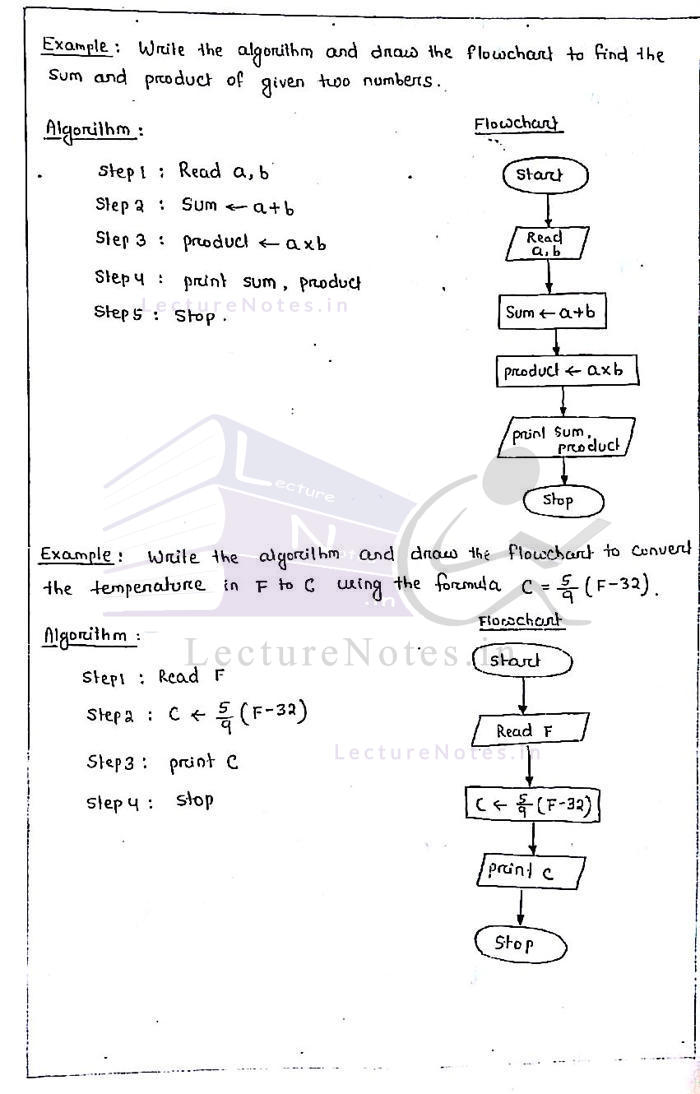 Example : Write the algorithm and draw the flowchart to find the
Sum and product of given two numbers.
Algorithm :
Step 1 : Read a, b
Step 2 : Sum ← a+b
Step 3 : product ← a×b
Step 4 : print sum, product
Step 5 : Stop.
LectureNotes.in
Flowchart
Start
Read
a, b
Sum ← a+b
product ← a×b
print Sum,
product
Stop
Lecture
Notes
.in
Example : Write the algorithm and draw the flowchart to convert
the temperature in F to C using the formula C = 5/9 (F-32).
Algorithm :
LectureNotes.in
Step1 : Read F
Step2 : C ← 5/9 (F-32)
Step3 : print C
Step4 : Stop
LectureNotes.in
Flowchart
Start
Read F
C ← 5/9 (F-32)
print C
Stop